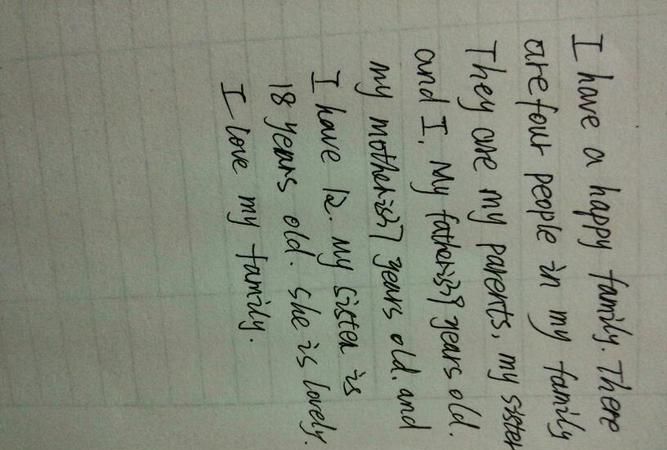 I have a happy family. There
are four people in my family
They are my parents, my sister
and I. My father is years old.
my mother is years old. and
I have 12. my sister is
18 years old. she is lovely.
I love my family.